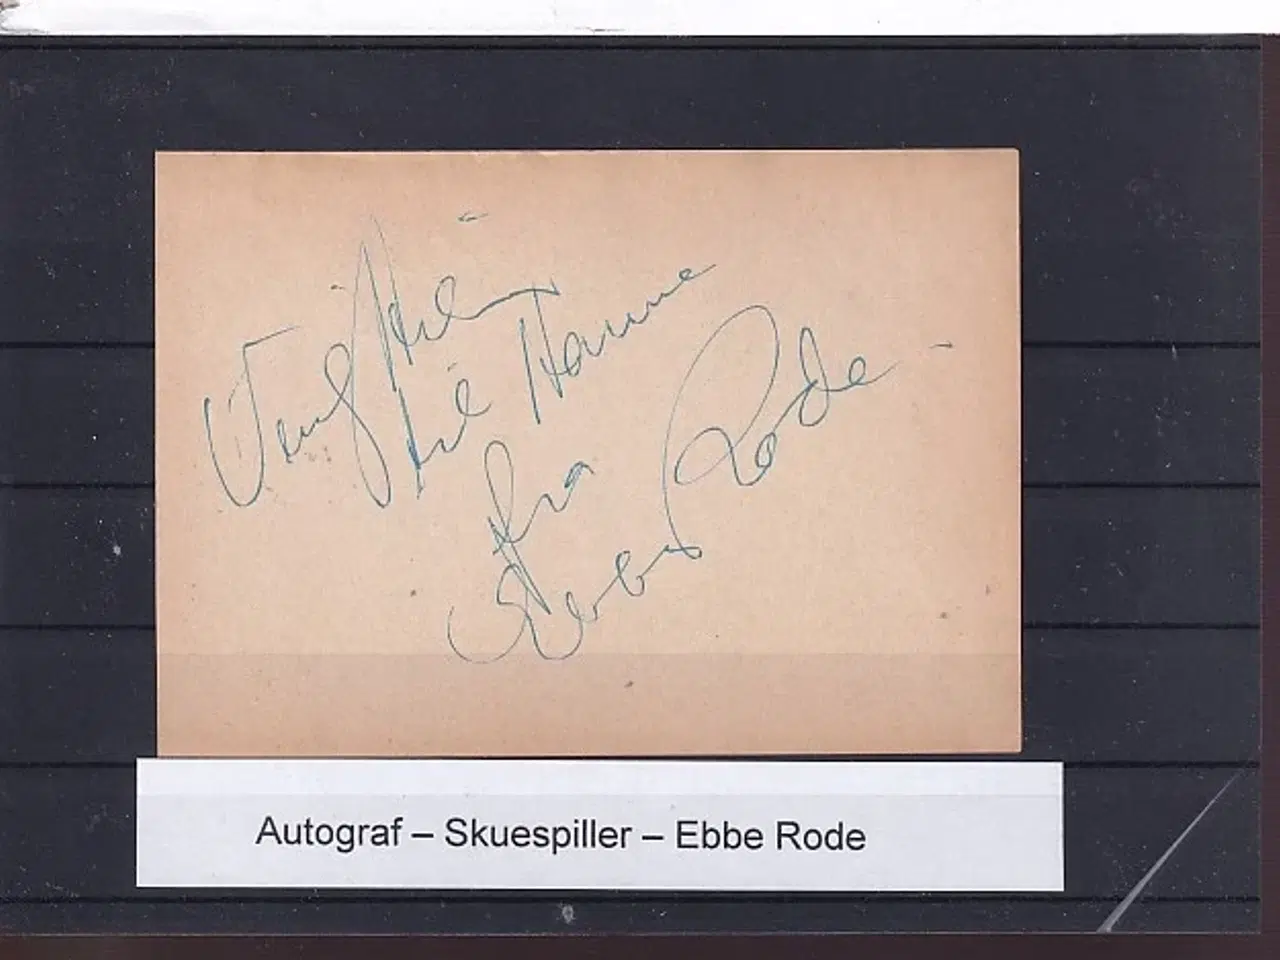 Venlig Hilsen
til Hanne
fra
Ebbe Rode
Autograf – Skuespiller – Ebbe Rode